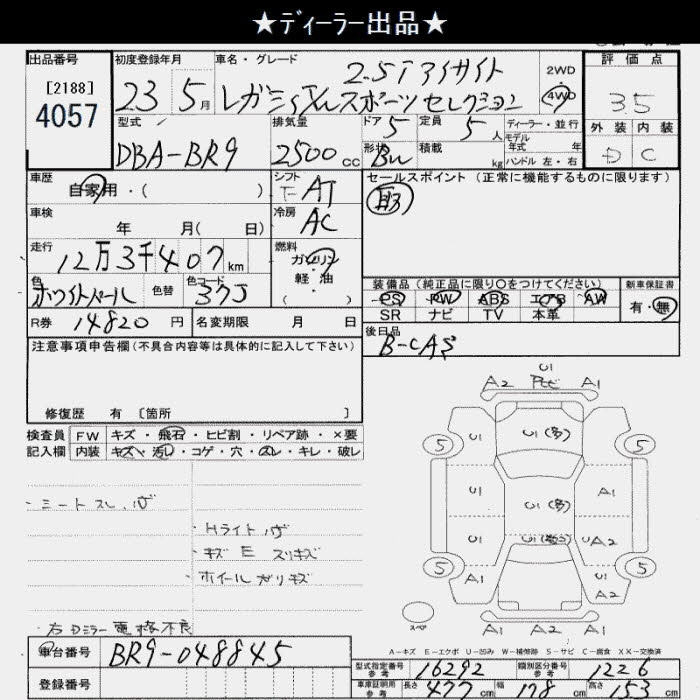 ★ディーラー出品★
出品番号 初度登録年月 車名・グレード 2.5i アイサイト 2WD 評価点
[2188] 4057 23 5月 レガシィ スポーツセレクション 4WD 3.5
型式 排気量 ドア 5 定員 5人 ディーラー・並行 外装 内装
DBA-BR9 2500cc 形状 積載 kg モデル年式 年式 ハンドル 左・右 D C
車歴 シフト セールスポイント (正常に機能するものに限ります)
自家用・( ) F AT 取
車検 冷房
年 月( 日) AC
走行 燃料
12万3千407km ガソリン・軽油
色 色替 色コード ( ) 装備品 (純正品に限り○をつけてください) 新車保証書
ホワイトパール 37J PS PW ABS エアB AW 有・無
R券 14820円 名変期限 月 日 SR ナビ TV 本革
注意事項申告欄 (不具合内容等は具体的に記入して下さい) 後日品
B-CAS
修復歴 有 [箇所
検査員 FW キズ・飛石・ヒビ割・リペア跡・×要
記入欄 内装 キズ・汚レ・コゲ・穴・スレ・キレ・破レ
U1
A2 A1
5 U1 U1(多) 5
U1 U1(多) A1
U1 A2
5 A1 U1 A2 5
A1 A2 A1
・シートスレ
・Hライト
・キズ E スリキズ
・ホイール ガリキズ
右Dミラー電格不良
スペア
A-キズ E-エクボ U-凹み W-補修跡 S-サビ C-腐食 XX-交換済
車台番号 BR9-048845 型式指定番号 参考 16292 類別区分番号 参考 1226
登録番号 車庫証明用 参考 長さ 477cm 幅 178cm 高さ 153cm